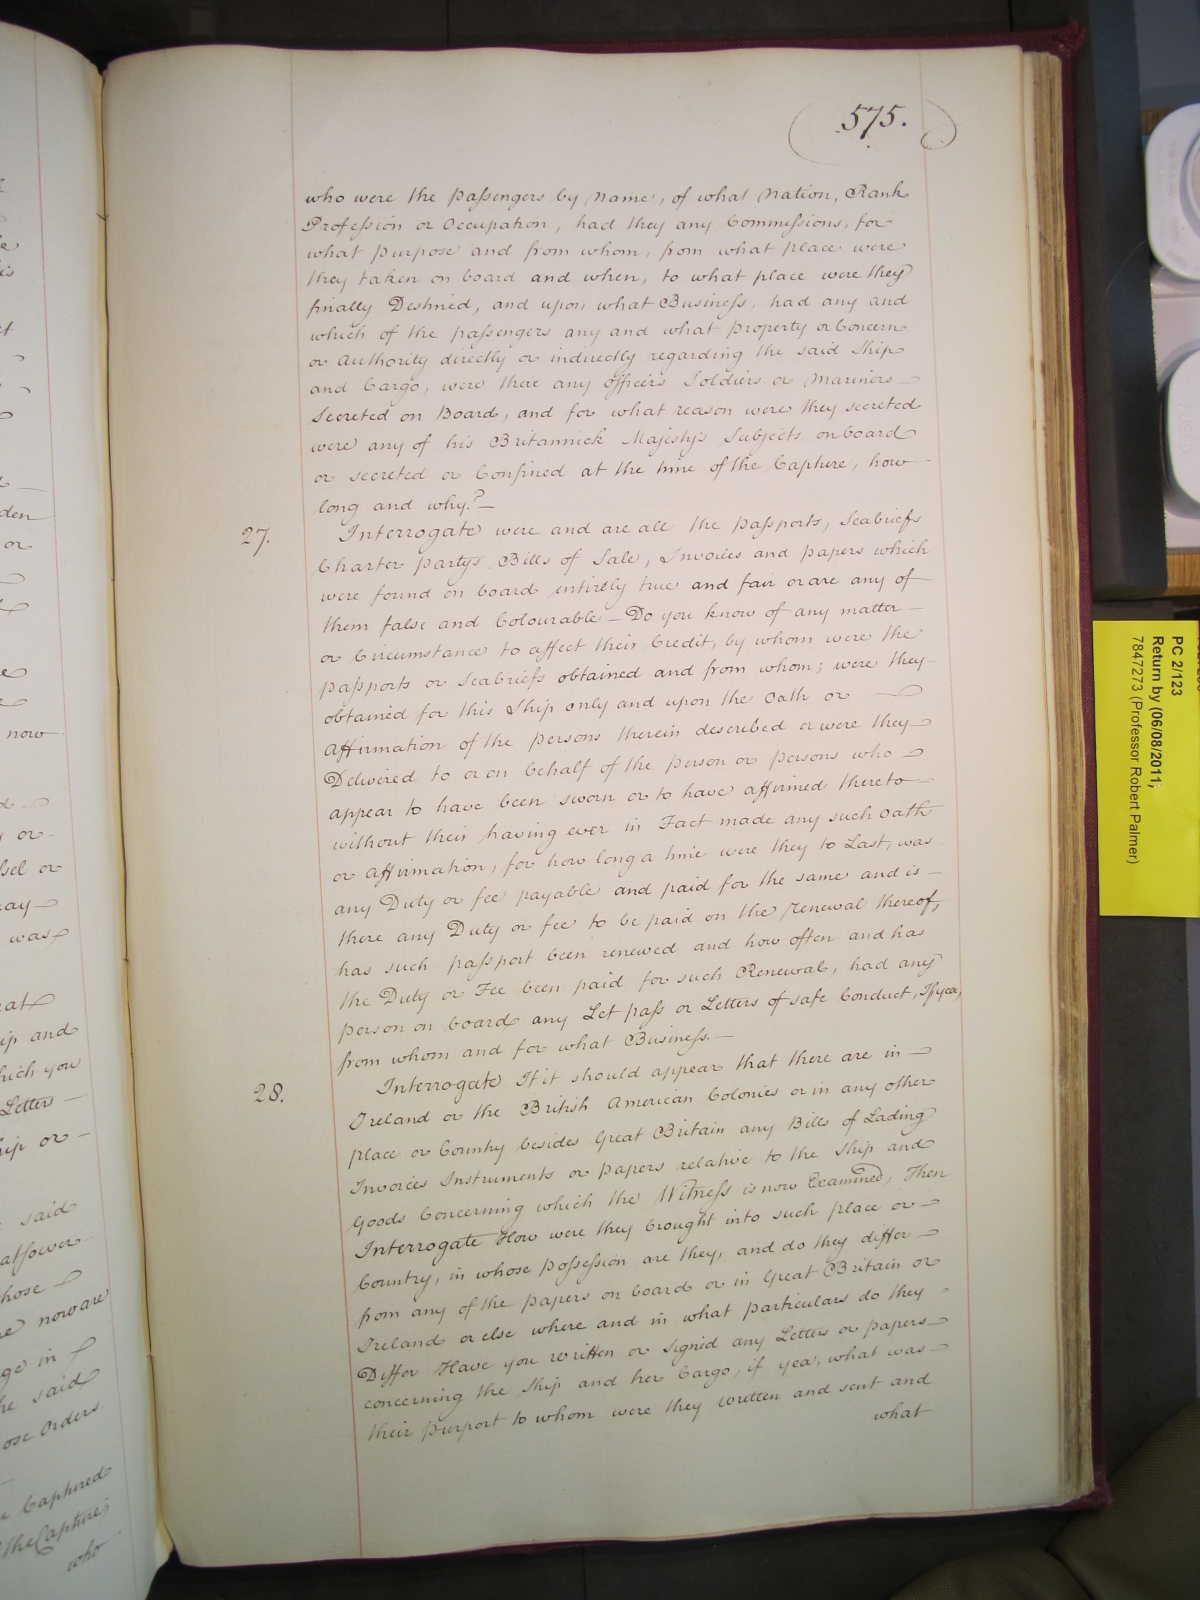 575.
who were the passengers by Name, of what Nation, Rank
Profession or Occupation, had they any Commissions, for
what purpose and from whom, from what place were
they taken on board and when, to what place were they
finally Destined, and upon what Business, had any and
which of the passengers any and what property or Concern
or Authority directly or indirectly regarding the said Ship
and Cargo, were there any officers Soldiers or Mariners
Secreted on Board, and for what reason were they secreted
were any of his Britannick Majesty's Subjects on board
or secreted or Confined at the time of the Capture, how
long and why?
27. Interrogate were and are all the passports, Seabriefs
Charter partys Bills of Sale, Invoices and papers which
were found on board entirely true and fair or are any of
them false and Colourable – Do you know of any matter
or Circumstance to affect their Credit, by whom were the
passports or Seabriefs obtained and from whom; were they
obtained for this Ship only and upon the Oath or
Affirmation of the persons therein described or were they
Delivered to or on behalf of the person or persons who
appear to have been sworn or to have affirmed thereto
without their having ever in Fact made any such Oath
or Affirmation, for how long a time were they to Last, was
any Duty or fee payable and paid for the same and is
there any Duty or fee to be paid on the Renewal thereof,
has such passport been renewed and how often and has
the Duty or Fee been paid for such Renewal, had any
person on board any Let pass or Letters of safe Conduct, If yea,
from whom and for what Business.
28. Interrogate If it should appear that there are in
Ireland or the British American Colonies or in any other
place or Country besides Great Britain any Bills of Lading
Invoices Instruments or papers relative to the Ship and
Goods Concerning which the Witness is now Examined, Then
Interrogate How were they brought into such place or
Country, in whose possession are they, and do they differ
from any of the papers on board or in Great Britain or
Ireland or else where and in what particulars do they
Differ Have you written or signed any Letters or papers
concerning the Ship and her Cargo, if yea, what was
their purport to whom were they written and sent and
what
den
or
now
or
was
ip and
hich you
Letters
hip or
said
whose
now are
ge in
he said
ose Orders
Captured
the Capture,
who
PC 2/123
Return by (06/08/2011;
7847273 (Professor Robert Palmer)